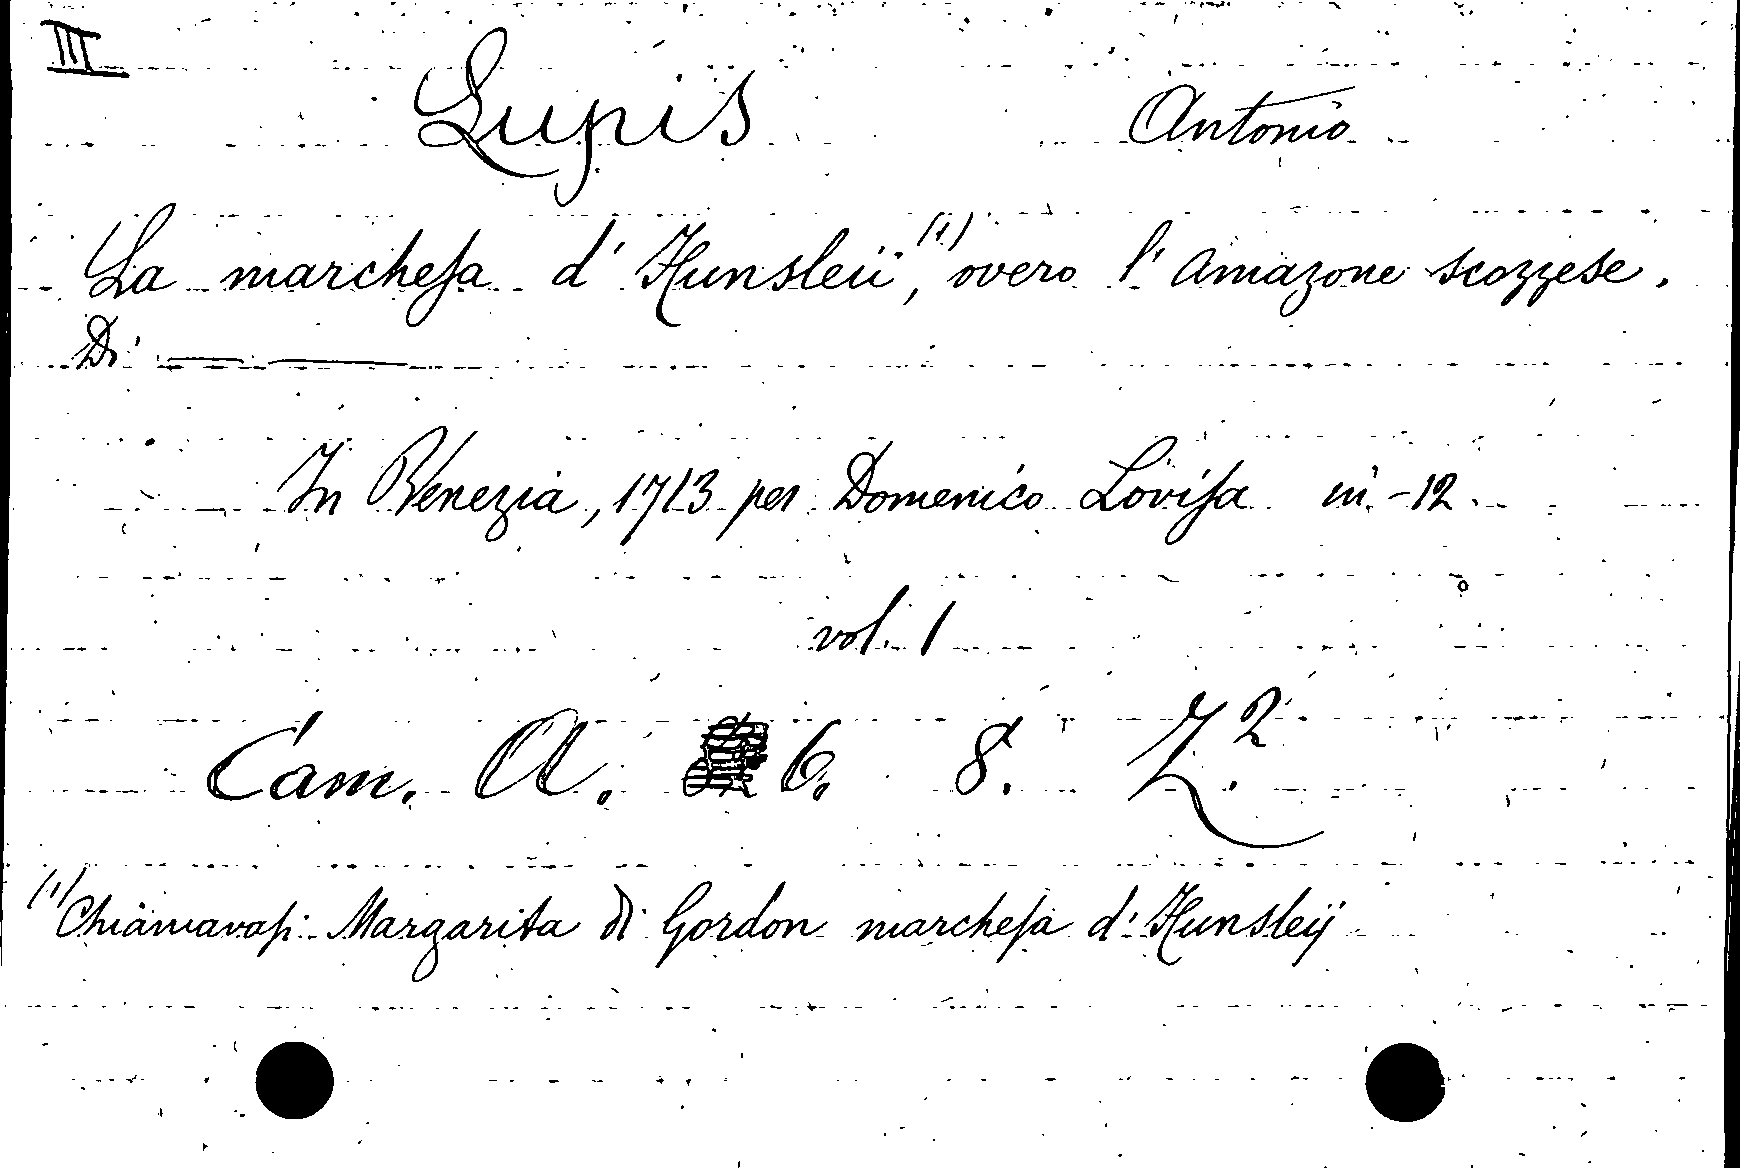 III
Lupis Antonio
La marcheſa d' Hunsleii⁽¹⁾, overo l'amazone scozzese.
Di —— ——
In Venezia, 1713 per Domenico Loviſa in-12.
vol. 1
Cam. A. 6. 8. Z.²
⁽¹⁾ Chiamavaſi Margarita di Gordon marcheſa d' Hunsleij